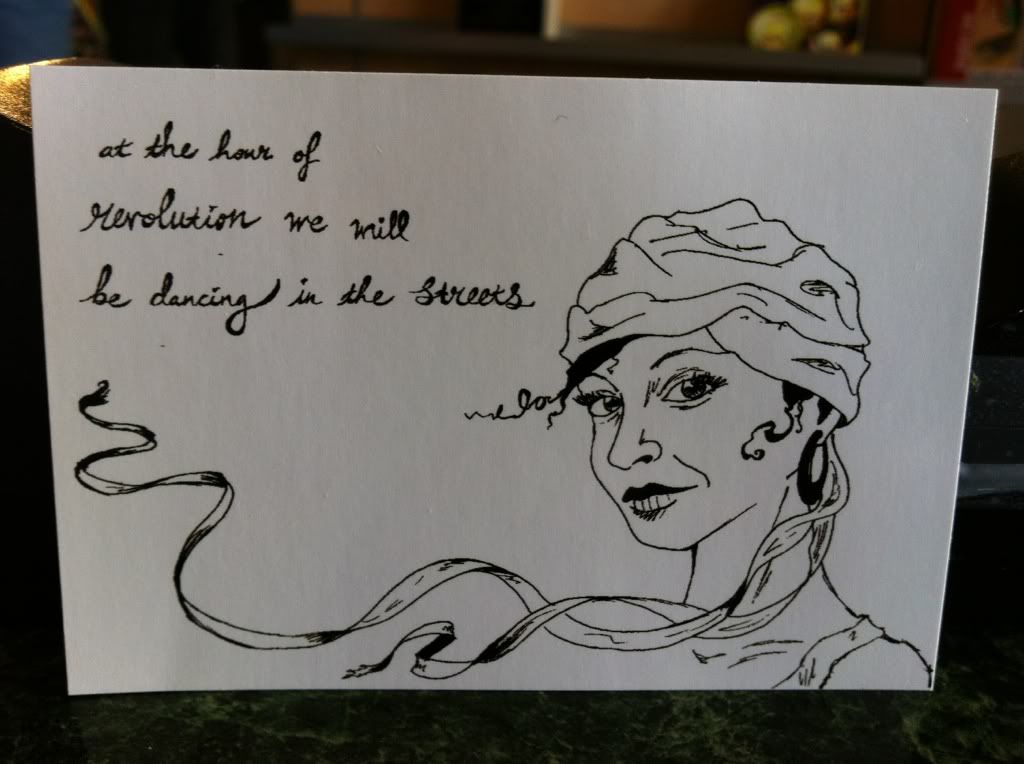 at the hour of
revolution we will
be dancing in the streets